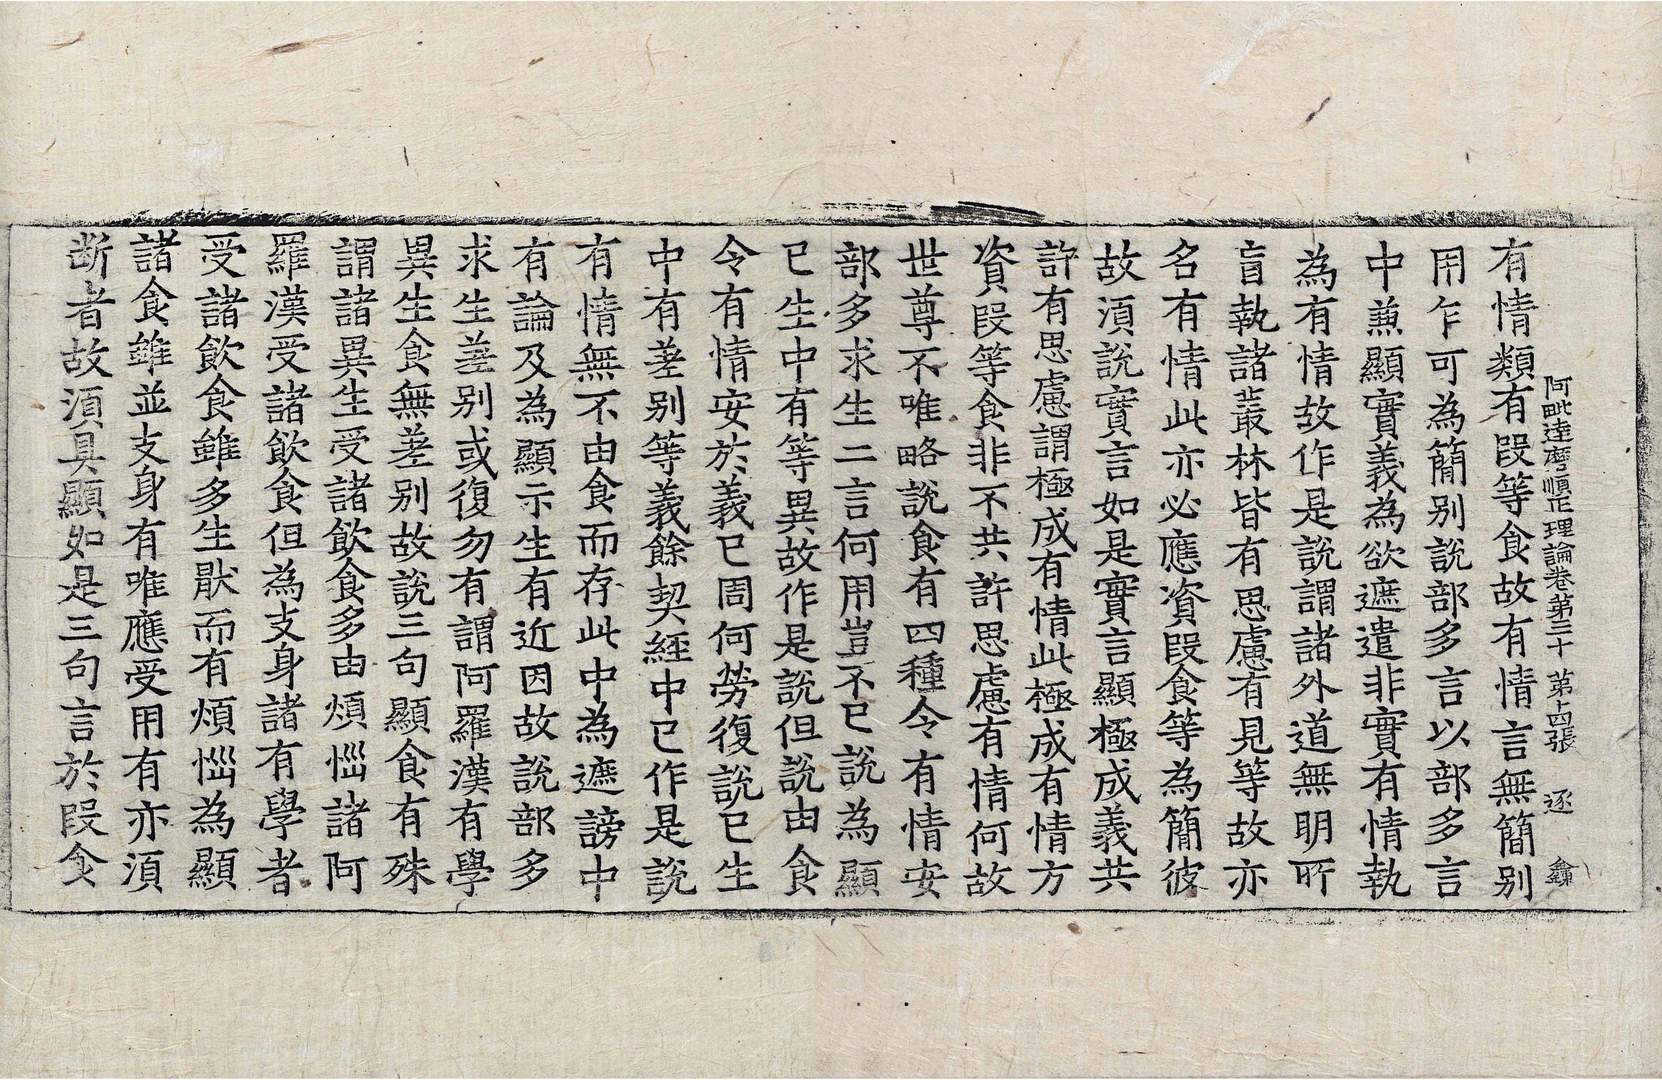 有情類有段等食故有情言無簡別
阿毗達磨順正理論卷第三十 第十四張 逐
用乍可為簡別說部多言以部多言
中兼顯實義為欲遮遣非實有情執
為有情故作是說謂諸外道無明所
盲執諸叢林皆有思慮有見等故亦
名有情此亦必應資段食等為簡彼
故須說實言如是實言顯極成義共
許有思慮謂極成有情此極成有情方
資段等食非不共許思慮有情何故
世尊不唯略說食有四種令有情安
部多求生二言何用豈不已說為顯
已生中有等異故作是說但說由食
令有情安於義已周何勞復說已生
中有差別等義餘契經中已作是說
有情無不由食而存此中為遮謗中
有論及為顯示生有近因故說部多
求生差別或復勿有謂阿羅漢有學
異生食無差別故說三句顯食有殊
謂諸異生受諸飲食多由煩惱諸阿
羅漢受諸飲食但為支身諸有學者
受諸飲食雖多生猒而有煩惱為顯
諸食雖並支身有唯應受用有亦須
斷者故須具顯如是三句言於段食